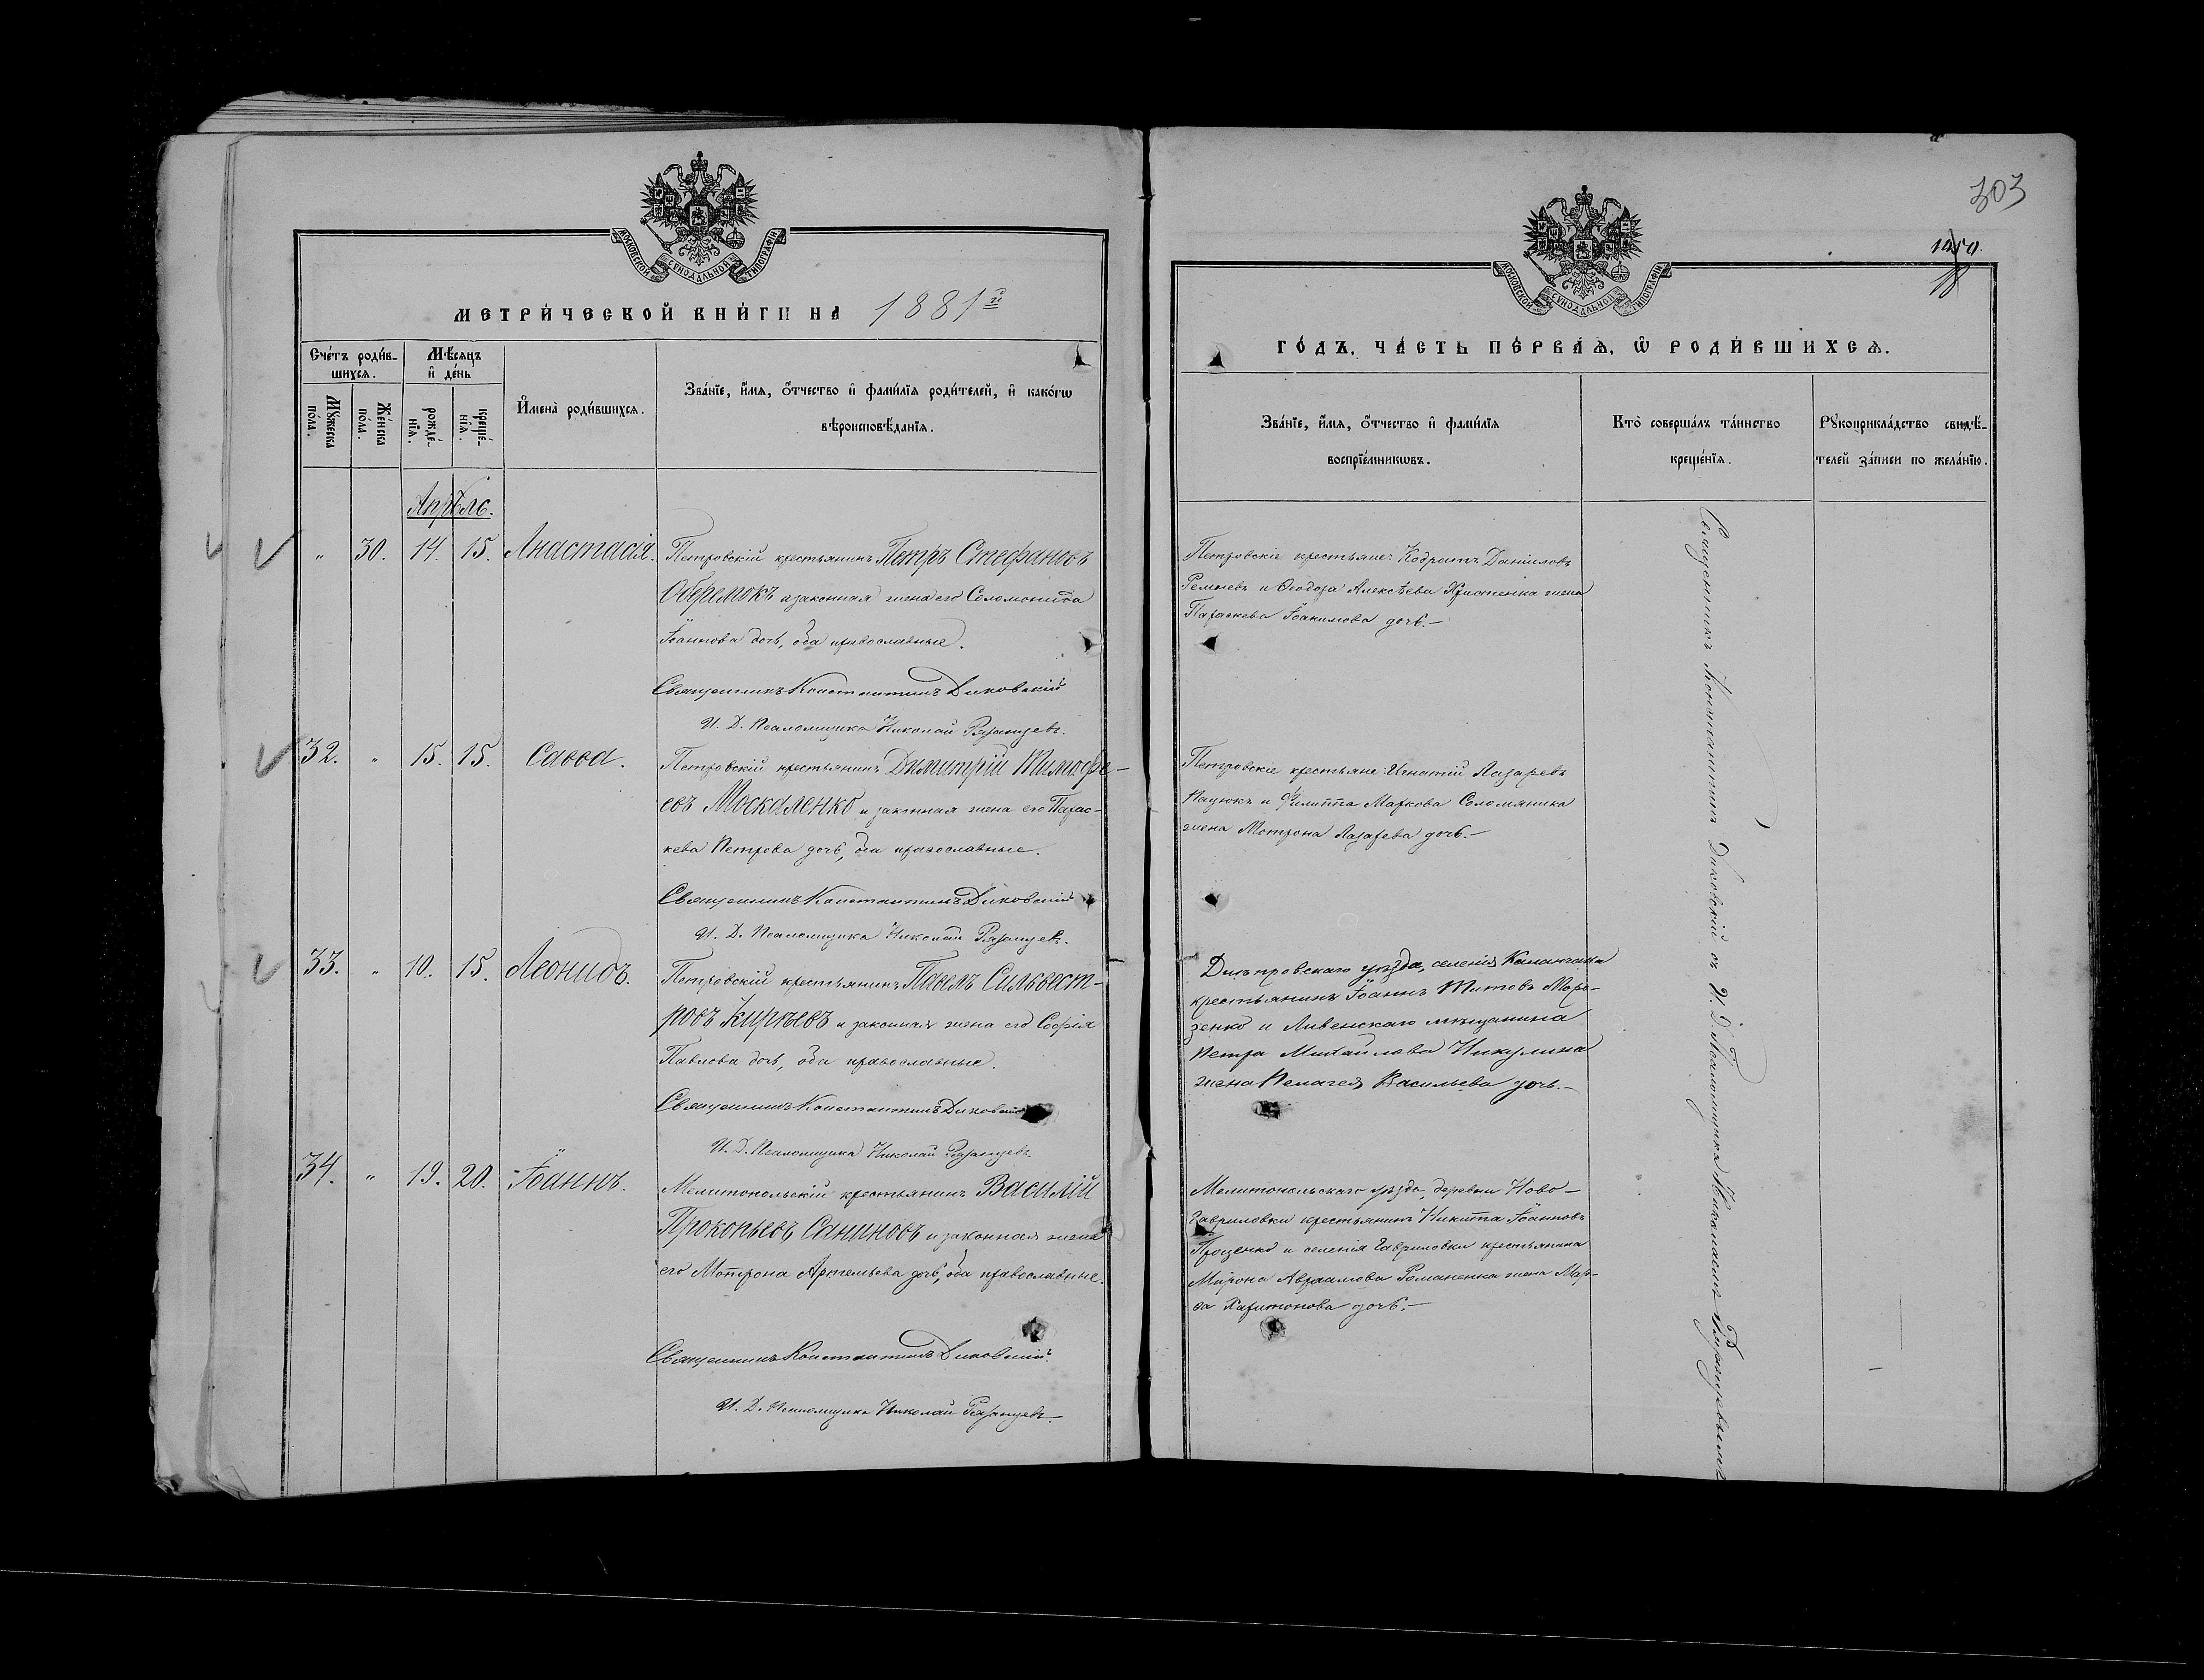 303
МОСКОВСКОЙ СУНОДАЛЬНОЙ ТИПОГРАФІИ
МЕТРИ́ЧЕСКОЙ КНИ́ГИ НА 1881й
Сче́тъ роди́в-
шихсѧ.
Мѣ́сѧцъ
и҆ де́нь
Мꙋ́жеска
по́ла.
Же́нска
по́ла.
рожде́-
нїѧ.
креще́-
нїѧ.
И҆мена̀ роди́вшихсѧ.
Зва́нїе, и҆́мѧ, ѻ҆́тчество и҆ фами́лїѧ роди́телей, и҆ како́гѡ
вѣроисповѣ́данїѧ.
Апрѣль.
" 30. 14. 15. Анастасія.
Петровскій крестьянинъ Петръ Стефановъ
Оберемокъ и законная жена его Соломонида
Іоаннова дочь, оба православные.
Священникъ Константинъ Диковскій
И. Д. Псаломщика Николай Рязанцевъ.
32. " 15. 15. Савва.
Петровскій крестьянинъ Димитрій Тимофе-
евъ Москаленко и законная жена его Парас-
кева Петрова дочь, оба православные.
Священникъ Константинъ Диковскій
И. Д. Псаломщика Николай Рязанцевъ.
33. " 10. 15. Леонидъ.
Петровскій крестьянинъ Павелъ Сильвест-
ровъ Кирѣевъ и законная жена его Софія
Павлова дочь, оба православные.
Священникъ Константинъ Диковскій
И. Д. Псаломщика Николай Рязанцевъ
34. " 19. 20. Іоаннъ.
Мелитопольскій крестьянинъ Василій
Прокопьевъ Саниновъ и законная жена
его Мотрона Артемьева дочь, оба православные.
Священникъ Константинъ Диковскій
И. Д. Псаломщика Николай Рязанцевъ.
МОСКОВСКОЙ СУНОДАЛЬНОЙ ТИПОГРАФІИ
ГО́ДЪ, ЧА́СТЬ ПЕ́РВАѦ, Ѡ҆ РОДИ́ВШИХСѦ.
Зва́нїе, и҆́мѧ, ѻ҆́тчество и҆ фами́лїѧ
воспрїе́мникѡвъ.
Кто̀ соверша́лъ та́инство
креще́нїѧ.
Рꙋкоприкла́дство свидѣ́-
телей за́писи по жела́нїю.
Петровскіе крестьяне: Кодратъ Даниловъ
и Ѳеодора Алексѣева Христенка жена
Параскева Іоакимова дочь.—
Петровскіе крестьяне: Игнатій Лазаревъ
Пацюкъ и Филиппа Маркова Соломяника
жена Мотрона Лазарева дочь.—
Днѣпровскаго уѣзда, селенія Каланчака
крестьянинъ Іоаннъ Титовъ Моро-
зенко и Ливенскаго мѣщанина
Петра Михайлова Никулина
жена Пелагея Васильева дочь.—
Мелитопольскаго уѣзда, деревни Ново-
Гавриловки крестьянинъ Никита Іоанновъ
Проценко и селенія Гавриловки крестьянина
Мирона Авраамова Романенка жена Мар-
ѳа Харитонова дочь.—
Священникъ Константинъ Диковскій съ И. Д. Псаломщика Николаемъ Рязанцевымъ